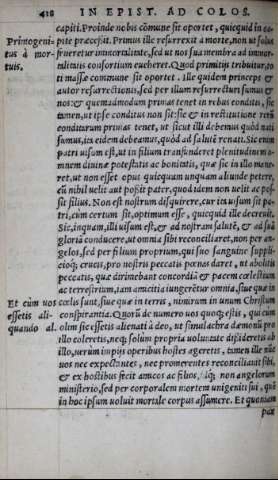 418 IN EPIST. AD COLOS.
capiti. Proinde nobis cõmune sit oportet, quicquid in ca-
Primogeni- pite præcessit. Primus ille resurrexit à morte, non ut solus
tus à mor- frueretur immortalitate, sed ut nos sua membra ad immor-
tuis. talitatis consortium eueheret. Quod primitijs tribuitur, to
ti massæ commune sit oportet. Ille quidem princeps &
autor resurrectionis, sed per illum resurrecturi sumus &
nos: & quemadmodum primas tenet in rebus conditis, sic
tamen, ut ipse conditus non sit: sic & in restitutione rerũ
conditarum primas tenet, ut sicut illi debemus quòd nati
sumus, ita eidem debeamus, quòd ad salutẽ renati. Sic enim
patri uisum est, ut in filium transfunderet plenitudinem o-
mnem diuinæ potestatis ac bonitatis, quæ sic in illo mane-
ret, ut non esset opus quicquam unquam aliunde petere,
cũ nihil uelit aut possit pater, quod idem non uelit ac pos-
sit filius. Non est nostrum disquirere, cur ita uisum sit pa-
tri, cum certum sit, optimum esse, quicquid ille decreuit.
Sic, inquam, illi uisum est, & ad nostram salutẽ, & ad suã
gloriã conducere, ut omnia sibi reconciliaret, non per an-
gelos, sed per filium proprium, qui suo sanguine suppli-
cioq́; crucis, pro nostris peccatis pœnas daret, ut abolitis
peccatis, quæ dirimebant concordiã & pacem cœlestium
ac terrestrium, iam amicitia iungerẽtur omnia, siue quæ in
Et cùm uos cœlis sunt, siue quæ in terris, nimirum in unum Christum
essetis ali- conspirantia. Quorũ de numero uos quoq; estis, qui cùm
quando al. olim sic essetis alienati à deo, ut simulachra dæmonũ pro
illo coleretis, neq; solum propria uoluntate dissideretis ab
illo, uerum impijs operibus hostes ageretis, tamen ille nũc
uos nec expectantes, nec promerentes reconciliauit sibi,
& ex hostibus fecit amicos ac filios, idq; non angelorum
ministerio, sed per corporalem mortem unigeniti sui, quẽ
in hoc ipsum uoluit mortale corpus assumere. Et quoniam
pax